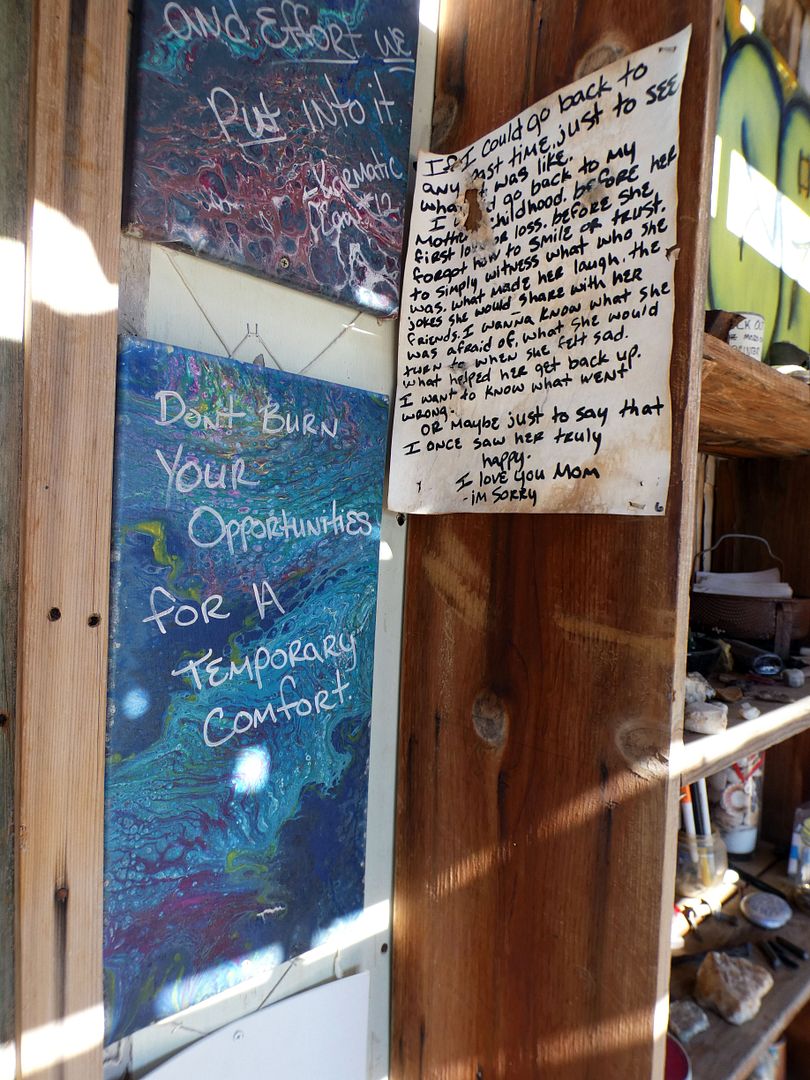 AND EFFORT WE
PUT INTO IT.
-KARMATIC
If I could go back to
any past time, just to see
what it was like.
I go back to my
Mother childhood, before her
first love or loss, before she
forgot how to smile or trust,
to simply witness what who she
was, what made her laugh, the
jokes she would share with her
friends. I wanna know what she
was afraid of, what she would
turn to when she felt sad.
what helped her get back up.
I want to know what went
wrong.
OR Maybe just to say that
I once saw her truly
happy.
I love you Mom
-im sorry
DONT BURN
YOUR
OPPORTUNITIES
for A
TEMPORARY
COMFORT.